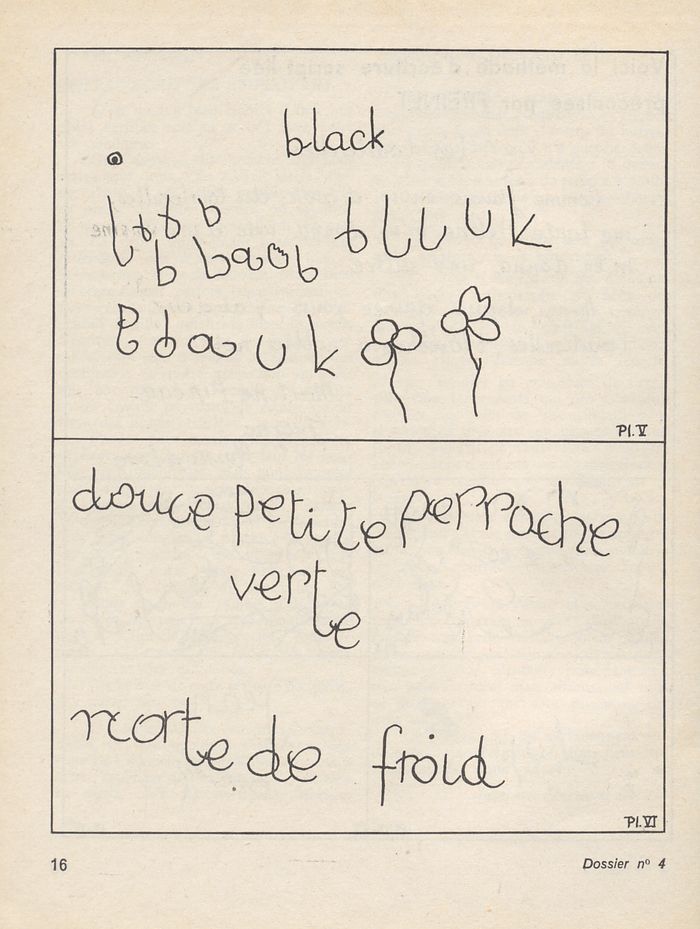 black
bLuuk
b baob
Pl. V
douce petite perroche
verte
morte de froid
Pl. VI
16 Dossier nº 4